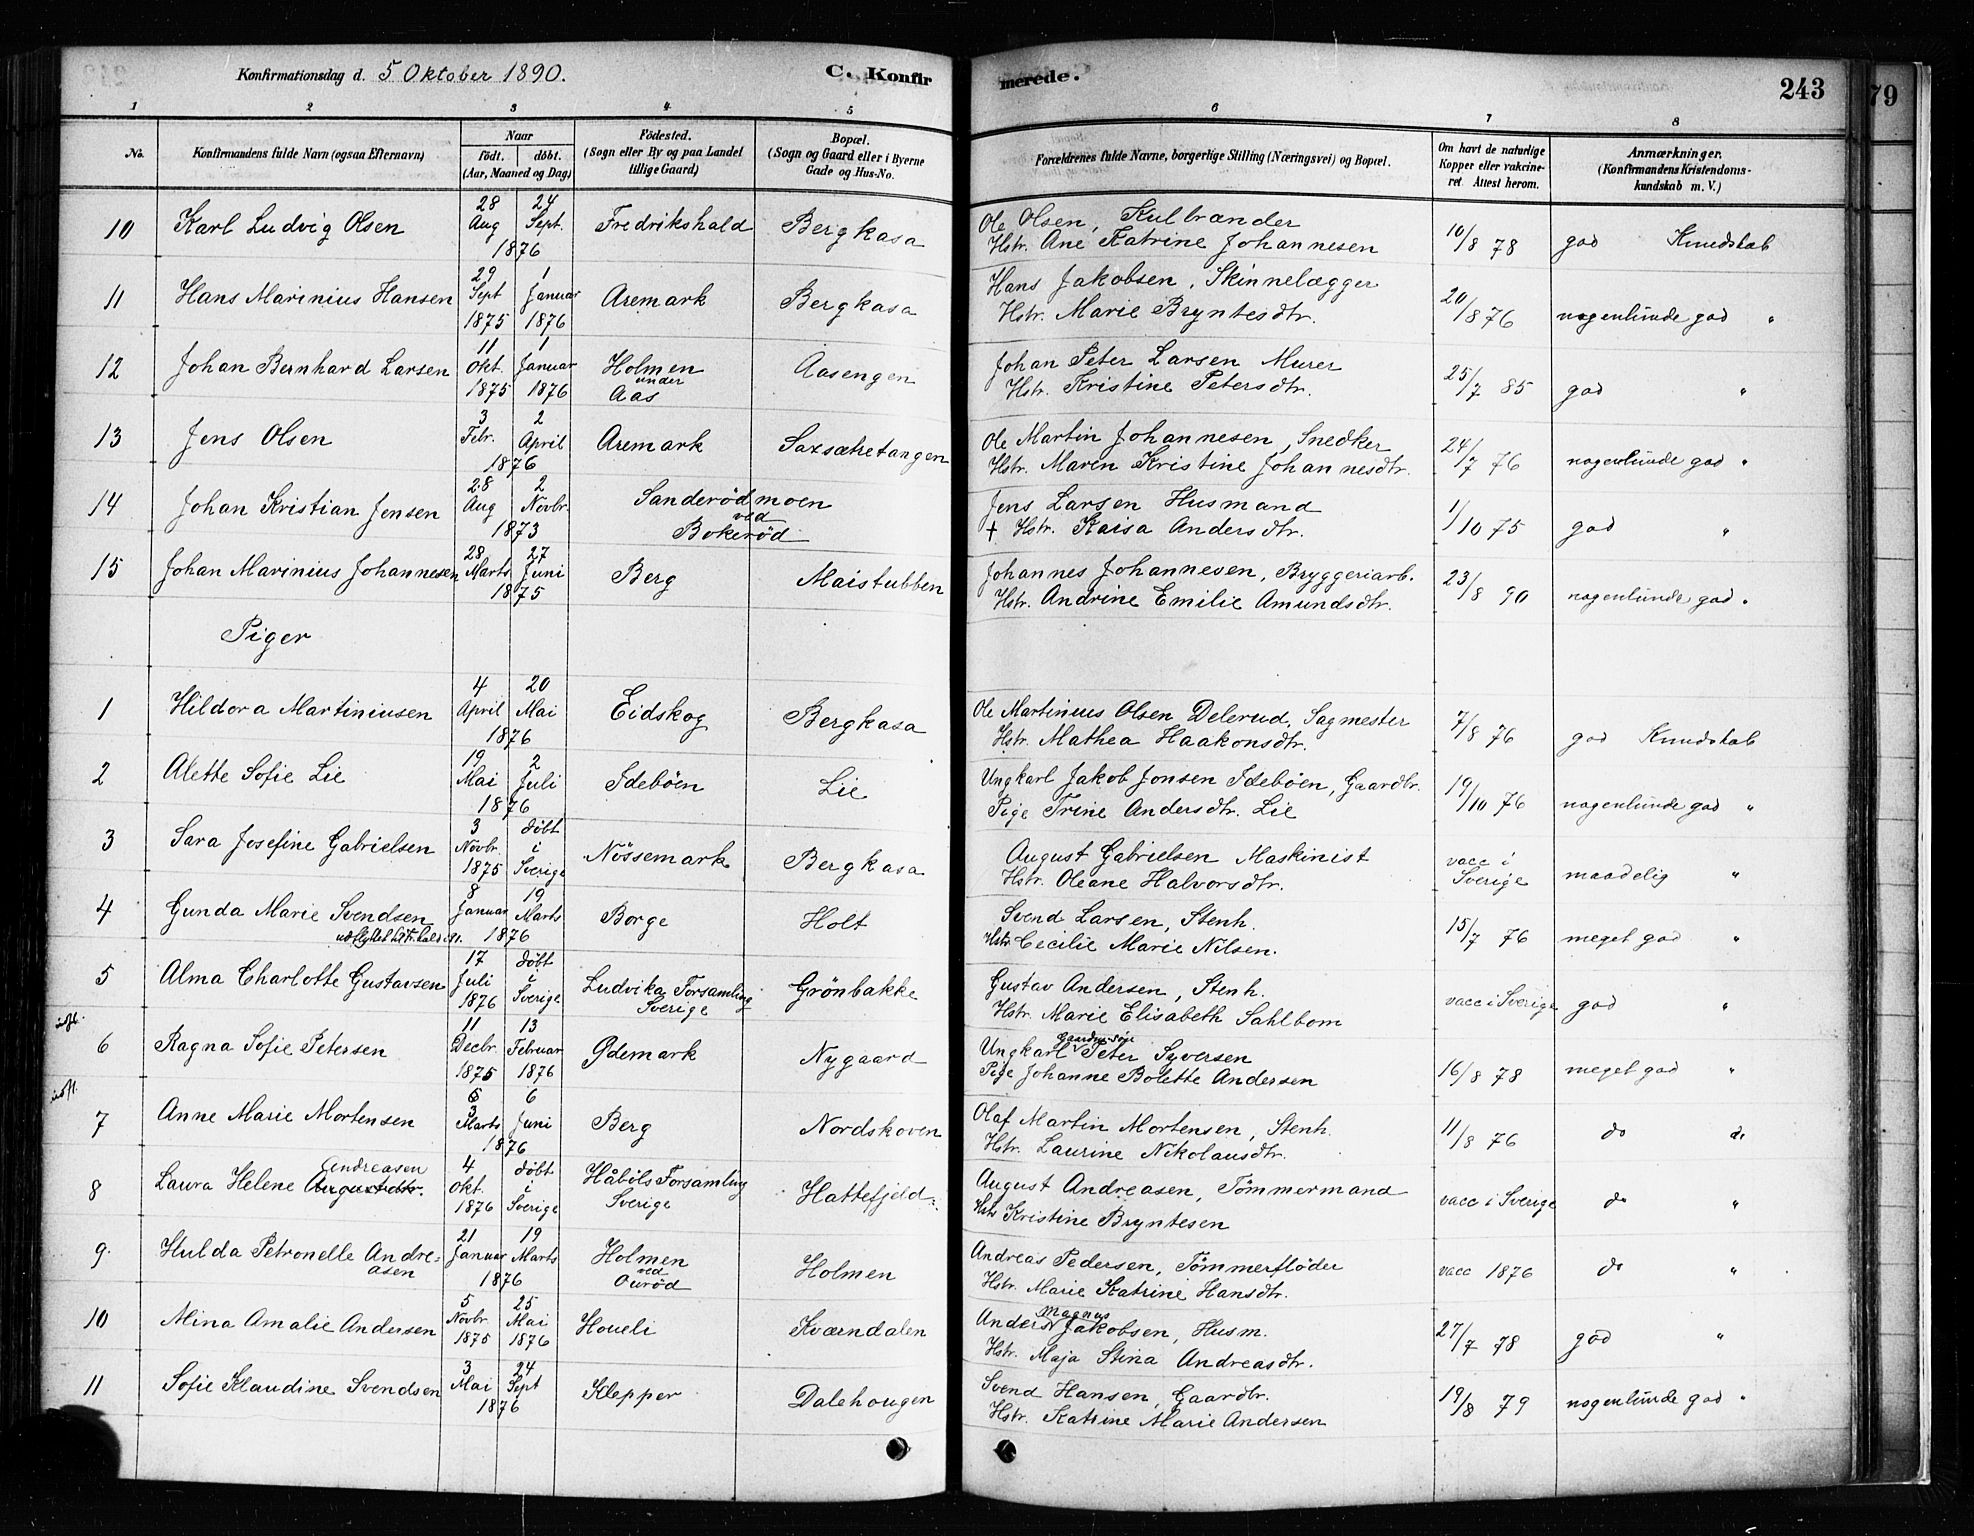 Konfirmationsdag d. 5 Oktober 1890. C. Konfirmerede. 243
79
1 2 3 4 5 6 7 8
No. Konfirmandens fulde Navn (ogsaa Efternavn) Naar født. døbt. (Aar, Maaned og Dag) Födested. (Sogn eller By og paa Landet tillige Gaard) Bopæl. (Sogn og Gaard eller i Byerne Gade og Hus-No. Forældrenes fulde Navne, borgerlige Stilling (Næringsvei) og Bopæl. Om havt de naturlige Kopper eller vakcineret Attest herom. Anmærkninger. (Konfirmandens Kristendomskundskab m. V.)
10 Karl Ludvig Olsen 28 Aug 24 Sept. 1876 Fredrikshald Bergkasa Ole Olsen, Kulbrænder Hstr. Ane Katrine Johannesen 10/8 78 god Kundskab
11 Hans Marinius Hansen 29 Sept 1875 1 Januar 1876 Aremark Bergkasa Hans Jakobsen, Skinnelægger Hstr. Marie Bryntesdtr. 20/8 76 nogenlunde god "
12 Johan Bernhard Larsen 11 Okt. 1875 1 Januar 1876 Holmen under Aas Aasengen Johan Peter Larsen Murer Hstr. Kristine Petersdtr. 25/7 85 god "
13 Jens Olsen 3 Febr. 2 April 1876 Aremark Saxsætretangen Ole Martin Johannesen, Snedker Hstr. Maren Kristine Johannesdtr. 24/7 76 nogenlunde god "
14 Johan Kristian Jensen 28 Aug 2 Novbr. 1873 Sanderödmoen ved Bokeröd Jens Larsen Husmand + Hstr. Kaisa Andersdtr. 1/10 75 god "
15 Johan Marinius Johannesen 28 Marts 27 Juni 1875 Berg Maistubben Johannes Johannesen, Bryggeriarb. Hstr. Andrine Emilie Amundsdtr. 23/8 90 nogenlunde god "
Piger
1 Hildora Martiniusen 4 April 20 Mai 1876 Eidskog Bergkasa Ole Martinius Olsen Delerud, Sagmester Hstr. Mathea Haakonsdtr. 7/8 76 god Kundskab
2 Alette Sofie Lie 19 Mai 2 Juli 1876 Idebøen Lie Ungkarl Jakob Jonsen Idebøen, Gaardbr. Pige Trine Andersdtr. Lie 19/10 76 nogenlunde god "
3 Sara Josefine Gabrielsen 3 Novbr. 1875 döbt i Sverige Nössemark Bergkasa August Gabrielsen Maskinist Hstr. Oleane Halvorsdtr. vacc i Sverige maadelig "
4 Gunda Marie Svendsen 8 Januar 19 Marts 1876 Borge Holt Svend Larsen, Stenh. Hstr. Cecilie Marie Nilsen. 15/7 76 meget god "
5 Alma Charlotte Gustavsen 17 Juli 1876 döbt i Sverige Ludvika Forsamling Sverige Grönbakke Gustav Andersen, Stenh. Hstr. Marie Elisabeth Sahlbom vacc i Sverige god "
6 Ragna Sofie Petersen 11 Decbr. 1875 13 Februar 1876 Ødemark Nygaard Ungkarl Peter Syversen Pige Johanne Bolette Andersen 16/8 78 meget god "
7 Anne Marie Mortensen Marts 6 Juni 1876 Berg Nordskoven Olaf Martin Mortensen, Stenh. Hstr. Laurine Nikolausdtr. 11/8 76 do do
8 Laura Helene Augustdtr. Andreasen 4 Okt. 1876 döbt i Sverige Håböls Forsamling Sverige Hattefjeld August Andreasen, Tömmermand Hstr. Kristine Bryntesen vacc i Sverige do "
9. Hulda Petronelle Andreasen 21 Januar 19 Marts 1876 Holmen ved Ouröd Holmen Andreas Pedersen, Tömmerflöder Hstr. Marie Katrine Hansdtr. vacc 1876 do "
10 Mina Amalie Andersen 5 Novbr. 1875 25 Mai 1876 Houeli Kværndalen Anders Magnus Jakobsen, Husm. Hstr. Maja Stina Andreasdtr. 27/7 78 god "
11 Sofie Klaudine Svendsen 3 Mai 24 Sept 1876 Klepper Dalehougen Svend Hansen, Gaardbr. Hstr. Katrine Marie Andersen 19/8 79 nogenlunde god "